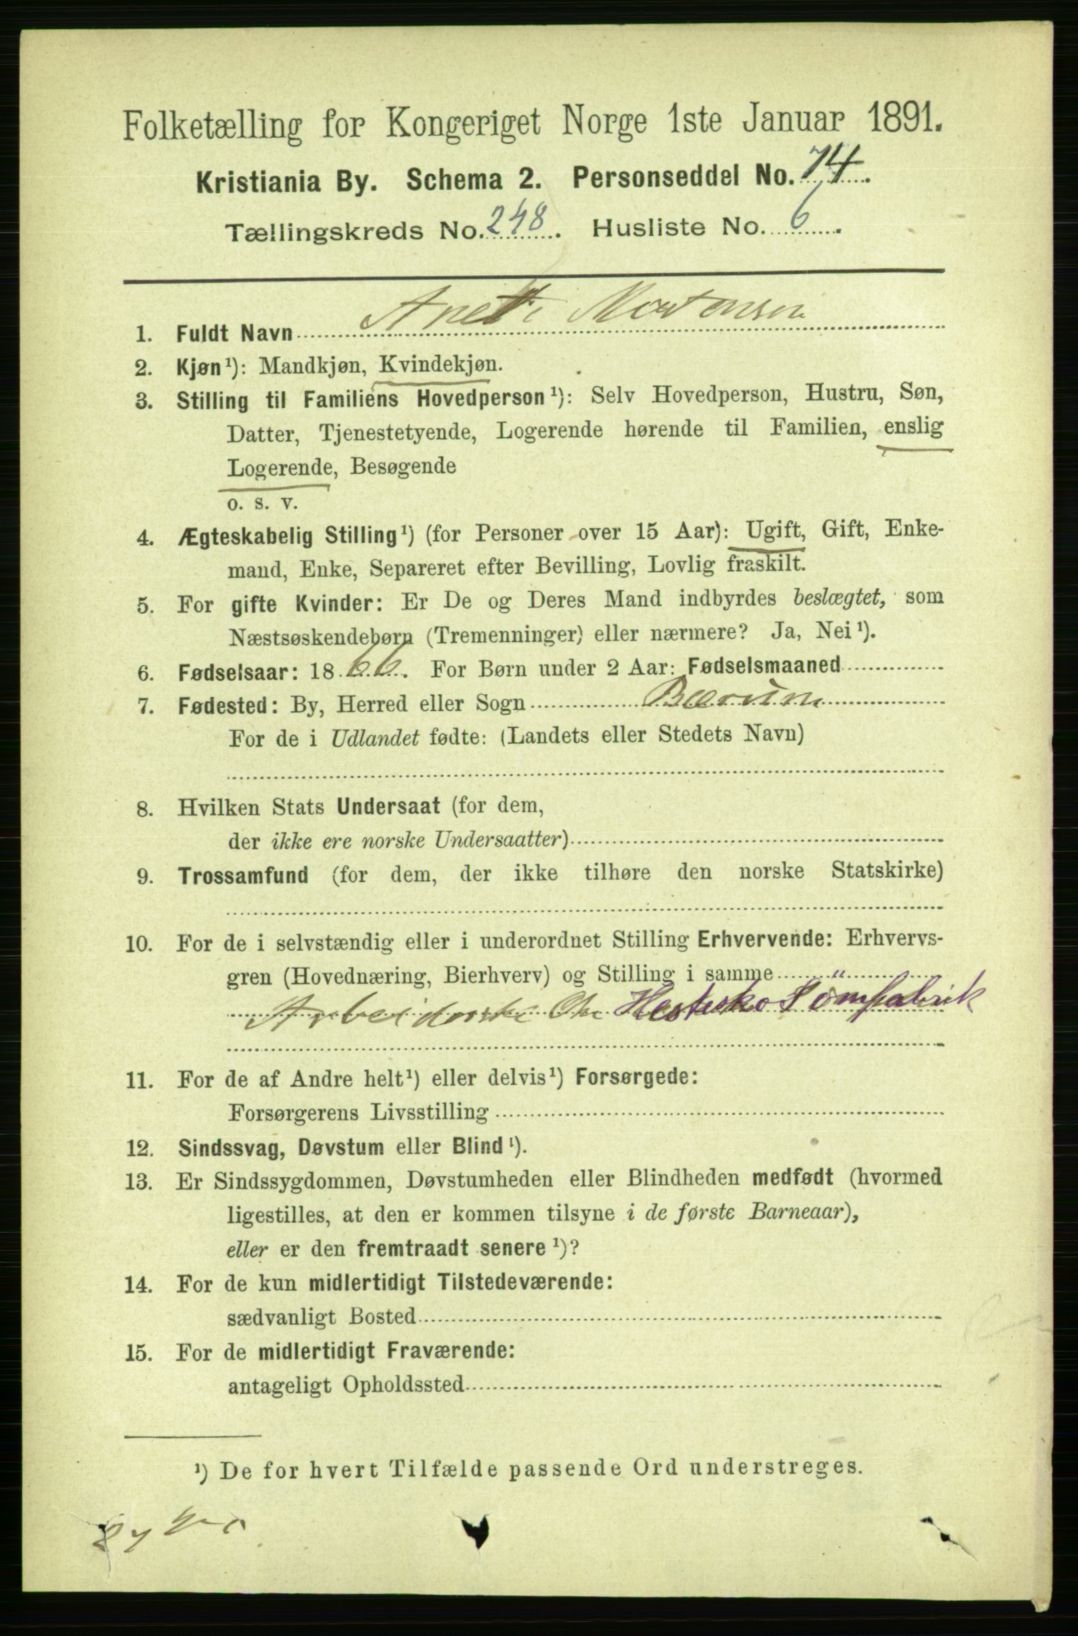 Folketælling for Kongeriget Norge 1ste Januar 1891.
Kristiania By. Schema 2. Personseddel No. 74.
Tællingskreds No. 248. Husliste No. 6.
1. Fuldt Navn Anette Mortensen
2. Kjøn¹): Mandkjøn, Kvindekjøn.
3. Stilling til Familiens Hovedperson¹): Selv Hovedperson, Hustru, Søn,
Datter, Tjenestetyende, Logerende hørende til Familien, enslig
Logerende, Besøgende
o. s. v.
4. Ægteskabelig Stilling¹) (for Personer over 15 Aar): Ugift, Gift, Enke-
mand, Enke, Separeret efter Bevilling, Lovlig fraskilt.
5. For gifte Kvinder: Er De og Deres Mand indbyrdes beslægtet, som
Næstsøskendebørn (Tremenninger) eller nærmere? Ja, Nei¹).
6. Fødselsaar: 1866. For Børn under 2 Aar: Fødselsmaaned
7. Fødested: By, Herred eller Sogn Bærum
For de i Udlandet fødte: (Landets eller Stedets Navn)
8. Hvilken Stats Undersaat (for dem,
der ikke ere norske Undersaatter)
9. Trossamfund (for dem, der ikke tilhøre den norske Statskirke)
10. For de i selvstændig eller i underordnet Stilling Erhvervende: Erhvervs-
gren (Hovednæring, Bierhverv) og Stilling i samme
Arbeiderske Chr Hestesko Sömfabrik
11. For de af Andre helt¹) eller delvis¹) Forsørgede:
Forsørgerens Livsstilling
12. Sindssvag, Døvstum eller Blind¹).
13. Er Sindssygdommen, Døvstumheden eller Blindheden medfødt (hvormed
ligestilles, at den er kommen tilsyne i de første Barneaar),
eller er den fremtraadt senere¹)?
14. For de kun midlertidigt Tilstedeværende:
sædvanligt Bosted
15. For de midlertidigt Fraværende:
antageligt Opholdssted
¹) De for hvert Tilfælde passende Ord understreges.